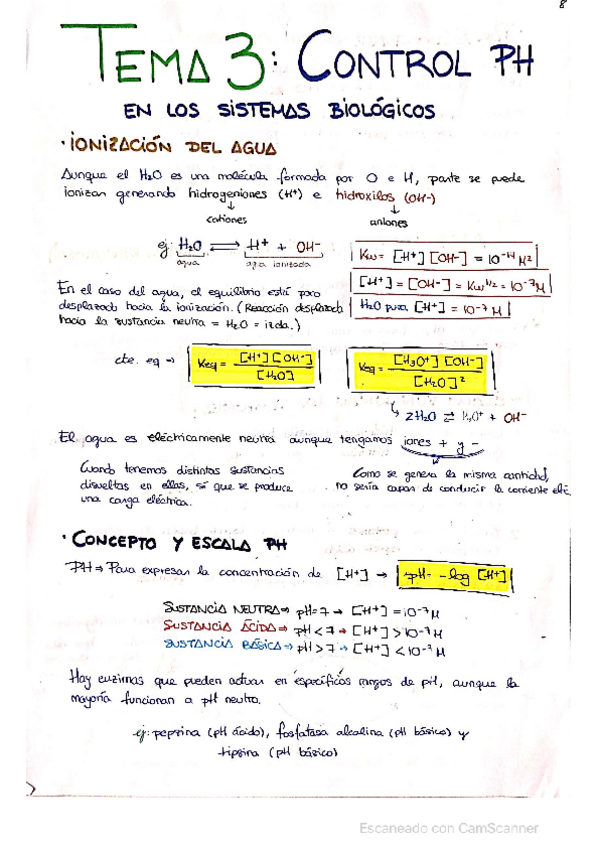 8
TEMA 3: CONTROL PH
EN LOS SISTEMAS BIOLÓGICOS
· IONIZACIÓN DEL AGUA
Aunque el H₂O es una molécula formada por O e H, parte se puede
ionizar generando hidrogeniones (H⁺) e hidroxilos (OH⁻)
↓ cationes ↓ aniones
ej: H₂O ⇌ H⁺ + OH⁻
agua agua ionizada
Kw = [H⁺] [OH⁻] = 10⁻¹⁴ M²
[H⁺] = [OH⁻] = Kw^1/2 = 10⁻⁷ M
H₂O pura [H⁺] = 10⁻⁷ M
En el caso del agua, el equilibrio está poco
desplazado hacia la ionización. (Reacción desplazada
hacia la sustancia neutra = H₂O = izda.)
cte. eq → Keq = [H⁺] [OH⁻] / [H₂O]
Keq = [H₃O⁺] [OH⁻] / [H₂O]²
↳ 2H₂O ⇌ H₃O⁺ + OH⁻
El agua es eléctricamente neutra aunque tengamos iones + y -
Cuando tenemos distintas sustancias
disueltas en ellas, sí que se produce
una carga eléctrica.
Como se genera la misma cantidad,
no sería capaz de conducir la corriente eléc.
· CONCEPTO Y ESCALA PH
PH ⇒ Para expresar la concentración de [H⁺] → pH = -log [H⁺]
SUSTANCIA NEUTRA ⇒ pH = 7 → [H⁺] = 10⁻⁷ M
SUSTANCIA ÁCIDA ⇒ pH < 7 → [H⁺] > 10⁻⁷ M
SUSTANCIA BÁSICA → pH > 7 → [H⁺] < 10⁻⁷ M
Hay enzimas que pueden actuar en específicos rangos de pH, aunque la
mayoría funcionan a pH neutro.
ej: pepsina (pH ácido), fosfatasa alcalina (pH básico) y
tripsina (pH básico)
Escaneado con CamScanner